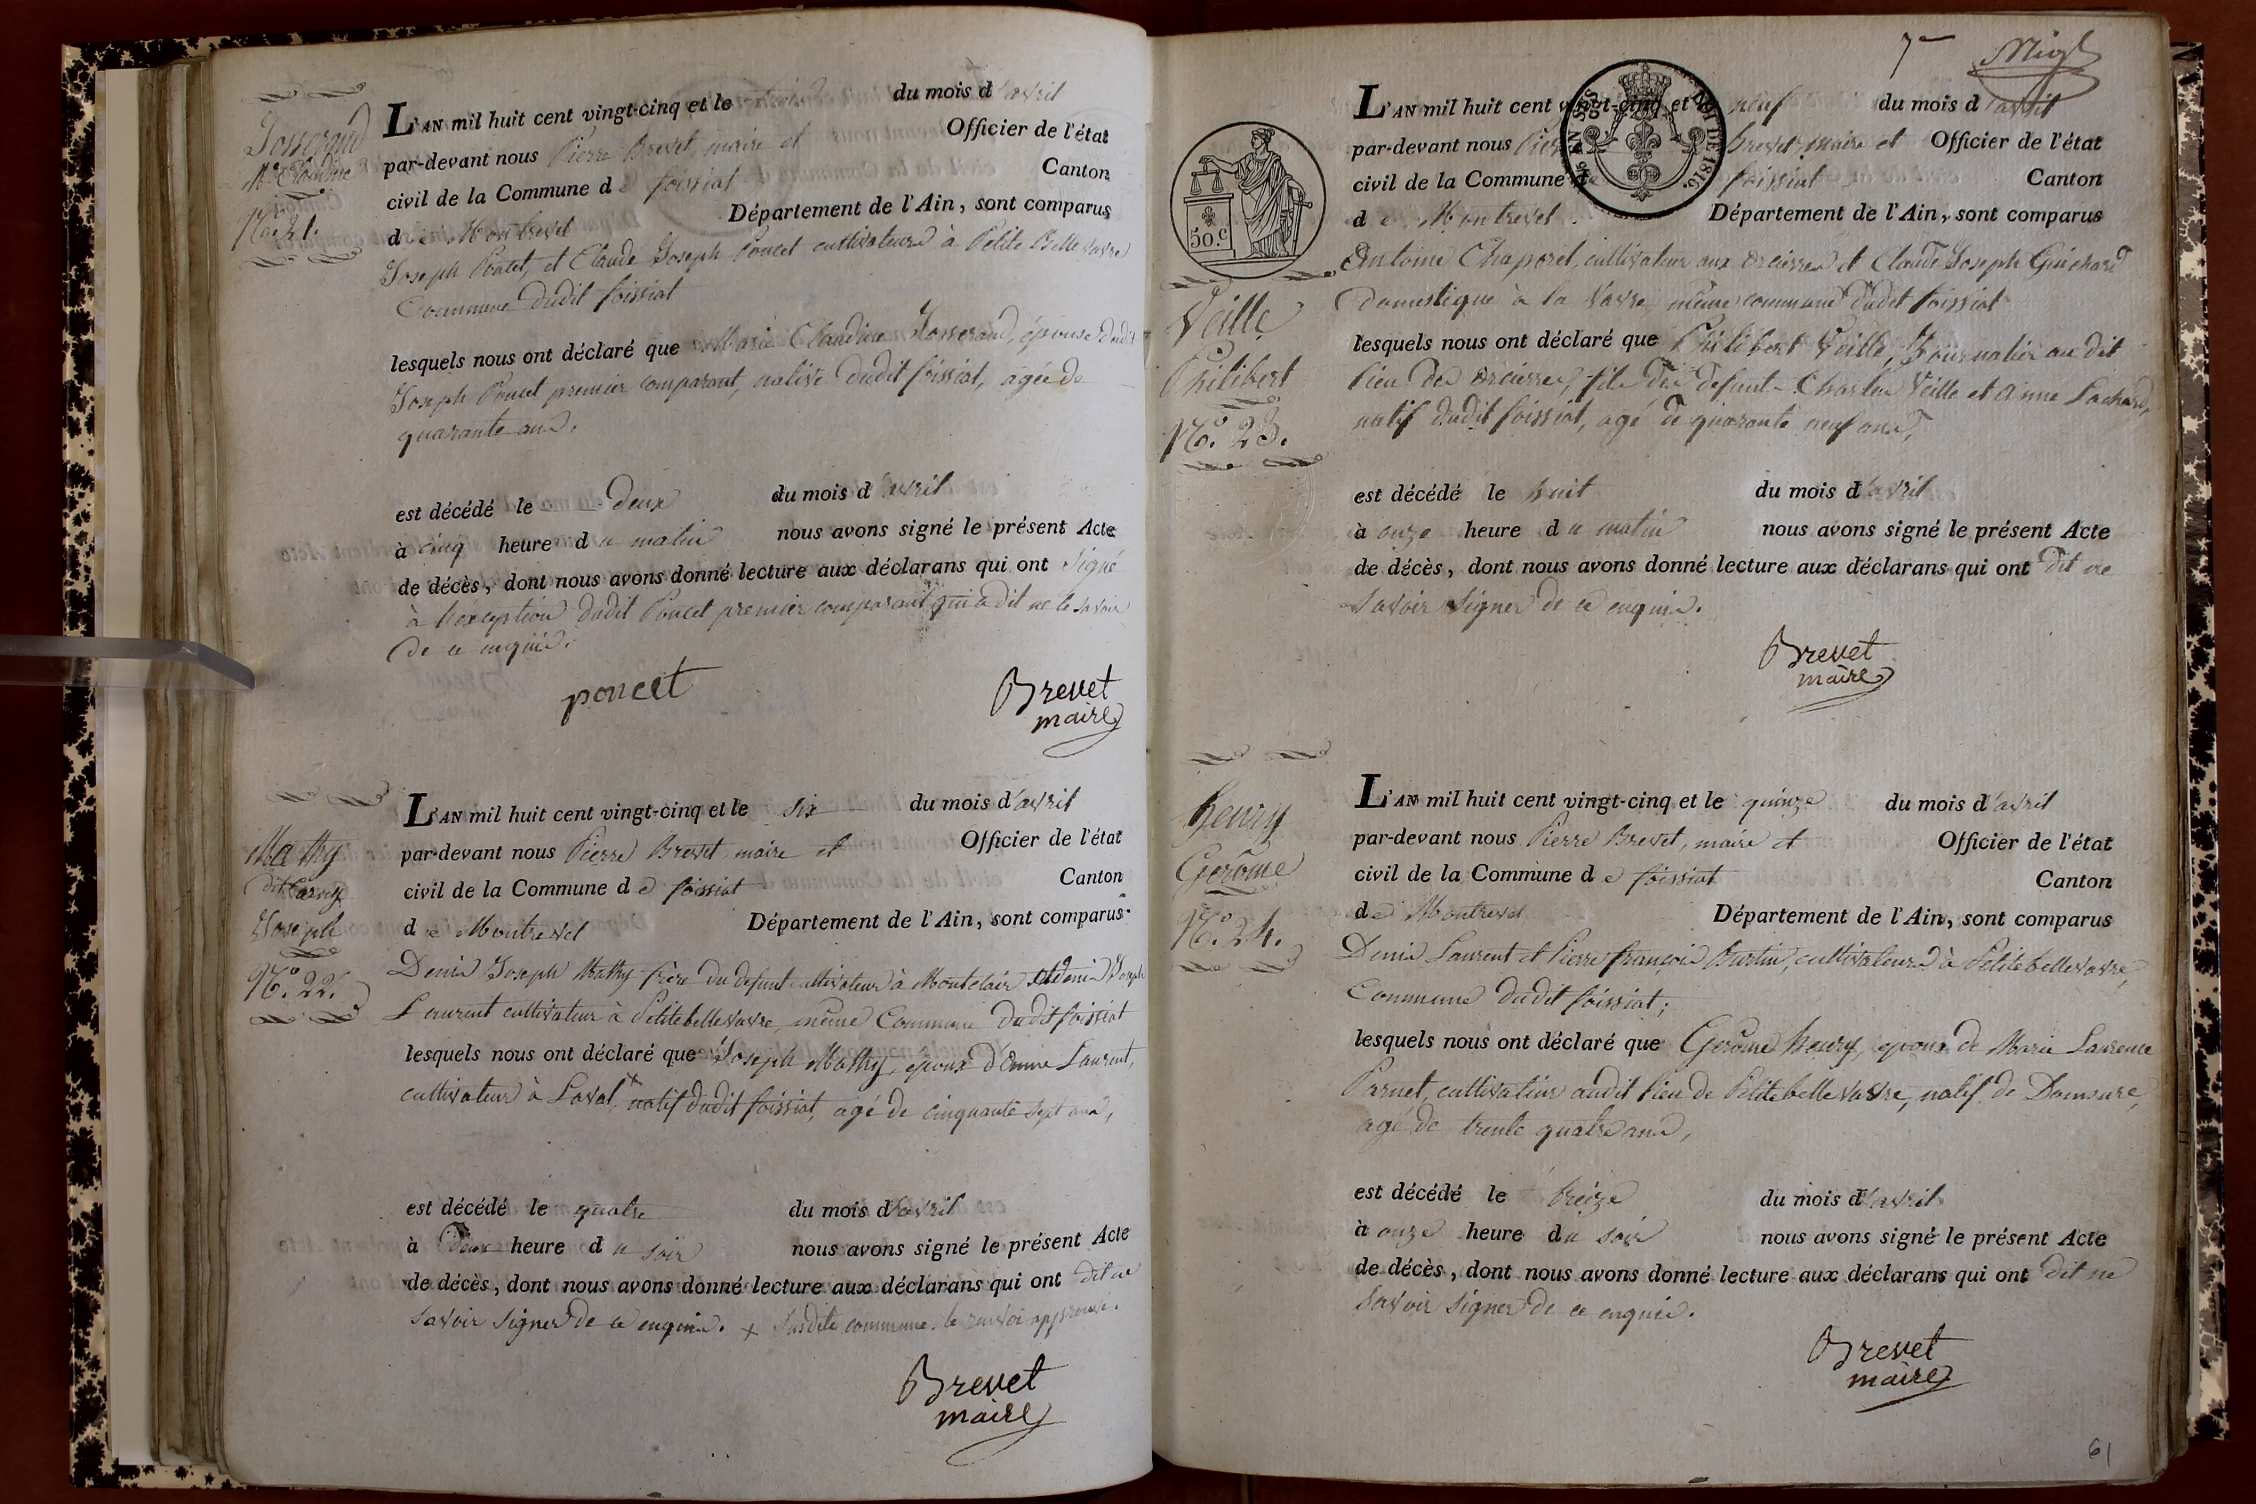 Josserand
Mie Claudine
N.o 21.
L'AN mil huit cent vingt-cinq et le trois du mois d'avril
par-devant nous Pierre Brevet, maire et Officier de l'état
civil de la Commune de foissiat Canton
de Montrevel Département de l'Ain, sont comparus
Joseph Poncet, et Claude Joseph Poncet cultivateurs à Petite Bellevavre
Commune dudit foissiat
lesquels nous ont déclaré que Marie Claudine Josserand, épouse dudit
Joseph Poncet premier comparant, native dudit foissiat, agée de
quarante ans,
est décédé le deux du mois d'avril
à cinq heure du matin nous avons signé le présent Acte
de décès, dont nous avons donné lecture aux déclarans qui ont signé
à l'exception dudit Poncet premier comparant qui a dit ne le savoir
de ce enquis.
poncet
Brevet
maire
Mathy
dit
Joseph
N.o 22.
L'AN mil huit cent vingt-cinq et le six du mois d'avril
par-devant nous Pierre Brevet, maire et Officier de l'état
civil de la Commune de foissiat Canton
de Montrevel Département de l'Ain, sont comparus
Denis Joseph Mathy frère du defunt cultivateur à Montclair et Denis Joseph
Laurent cultivateur à Petitebellevavre, même Commune dudit foissiat
lesquels nous ont déclaré que Joseph Mathy, epoux d'Anne Laurent,
cultivateur à Laval x natif dudit foissiat, agé de cinquante sept ans,
est décédé le quatre du mois d'avril
à deux heure du soir nous avons signé le présent Acte
de décès, dont nous avons donné lecture aux déclarans qui ont dit ne
savoir signer de ce enquis. x susdite commune. le renvoi approuvé.
Brevet
maire
7
50.c
L'AN mil huit cent vingt-cinq et le neuf du mois d'avril
par-devant nous Pierre Brevet, maire et Officier de l'état
civil de la Commune de foissiat Canton
de Montrevel Département de l'Ain, sont comparus
Antoine Chaparel, cultivateur aux orcières et Claude Joseph Guichard
Domestique à la Vavre, même commune dudit foissiat
Veille
Philibert
N.o 23.
lesquels nous ont déclaré que Philibert Veille, Journalier au dit
lieu des orcières, fils des defunt Charles Veille et Anne Lachard,
natif dudit foissiat, agé de quarante neuf ans,
est décédé le huit du mois d'avril
à onze heure du matin nous avons signé le présent Acte
de décès, dont nous avons donné lecture aux déclarans qui ont dit ne
savoir signer de ce enquis.
Brevet
maire
henry
Gerôme
N.o 24.
L'AN mil huit cent vingt-cinq et le quinze du mois d'avril
par-devant nous Pierre Brevet, maire et Officier de l'état
civil de la Commune de foissiat Canton
de Montrevel Département de l'Ain, sont comparus
Denis Laurent et Pierre françois Burtin, cultivateurs à Petitebellevavre,
Commune dudit foissiat;
lesquels nous ont déclaré que Gerôme henry, epoux de Marie Laurence
Parnet, cultivateur audit lieu de Petitebellevavre, natif de Domsure,
agé de trente quatre ans,
est décédé le treize du mois d'avril
à onze heure du soir nous avons signé le présent Acte
de décès, dont nous avons donné lecture aux déclarans qui ont dit ne
savoir signer de ce enquis.
Brevet
maire
61